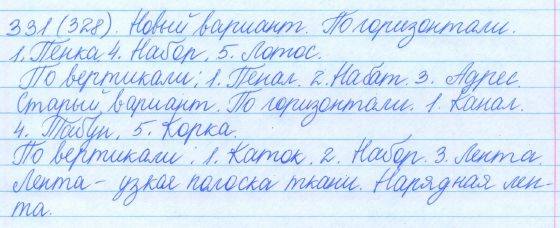 331 (328). Новый вариант. По горизонтали.
1. Пенка 4. Набор, 5. Лотос.
По вертикали: 1. Пенал. 2. Набат. 3. Адрес.
Старый вариант. По горизонтали. 1. Канал.
4. Табун, 5. Корка.
По вертикали: 1. Каток. 2. Набор. 3. Лента.
Лента – узкая полоска ткани. Нарядная лен-
та.